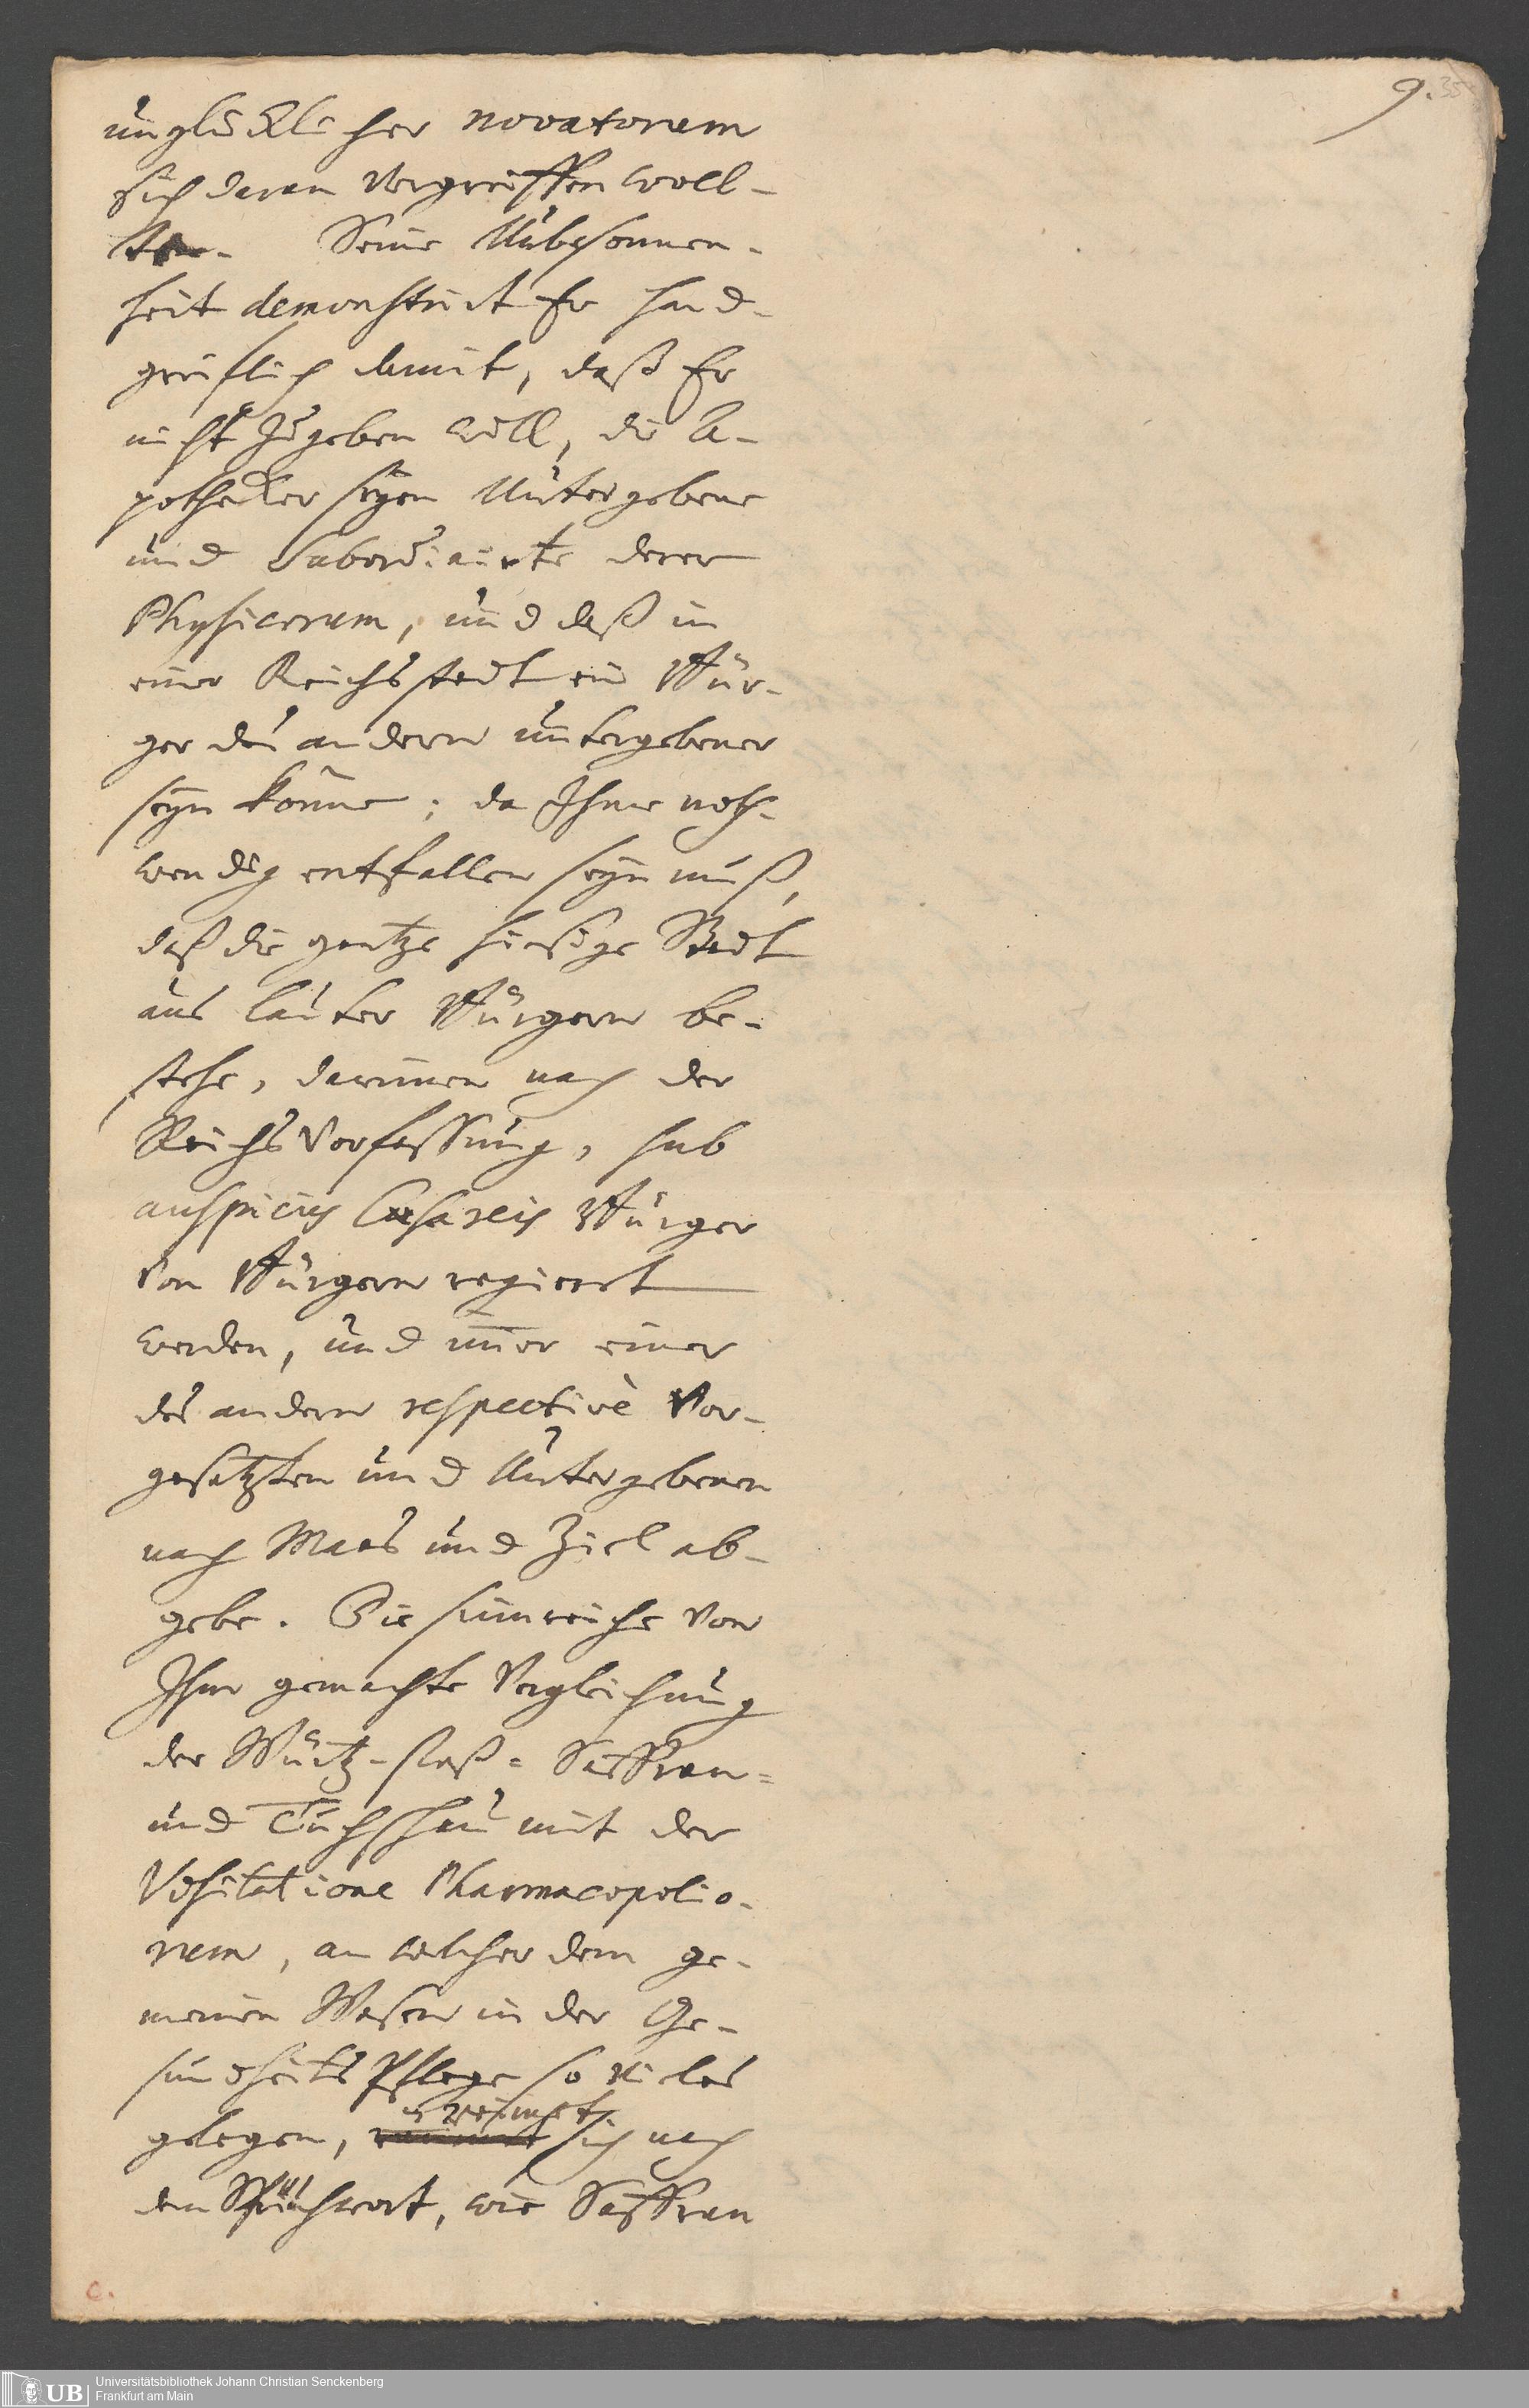 9.
35
unglücklicher novatorum
sich daran vergreiffen woll-
ten. Seine Unbesonnen-
heit demonstrirt Er hand-
greiflich damit, daß Er
nicht zugeben will, die A-
potheker seyen Untergebene
und Subordinirte derer
Physicorum, und daß in
einer Reichsstadt ein Bür-
ger des andern untergebener
seyn könne; da Ihme noth-
wendig entfallen seyn muß,
daß die gantze hiesige Stadt
aus lauter Bürgern be-
stehe, darinnen nach der
Reichs Verfassung, sub
auspiciis Caesareis Bürger
von Bürgern regieret
werden, und im̅er einer
des andern respectivè Vor-
gesetzten und Untergebenen
nach Maas und Ziel ab-
gebe. Die sinnreiche von
Ihm gemachte Vergleichung
der Würtz- Saffran=
und Tuchschau mit der
Visitatione Pharmacopolio-
rum, an welcher dem ge-
meinen Wesen in der Ge-
sundheits Pflege so vieles
gelegen, reimet sich nach
dem Sprichwort, wie Saffran
C.
UB
Universitätsbibliothek Johann Christian Senckenberg
Frankfurt am Main